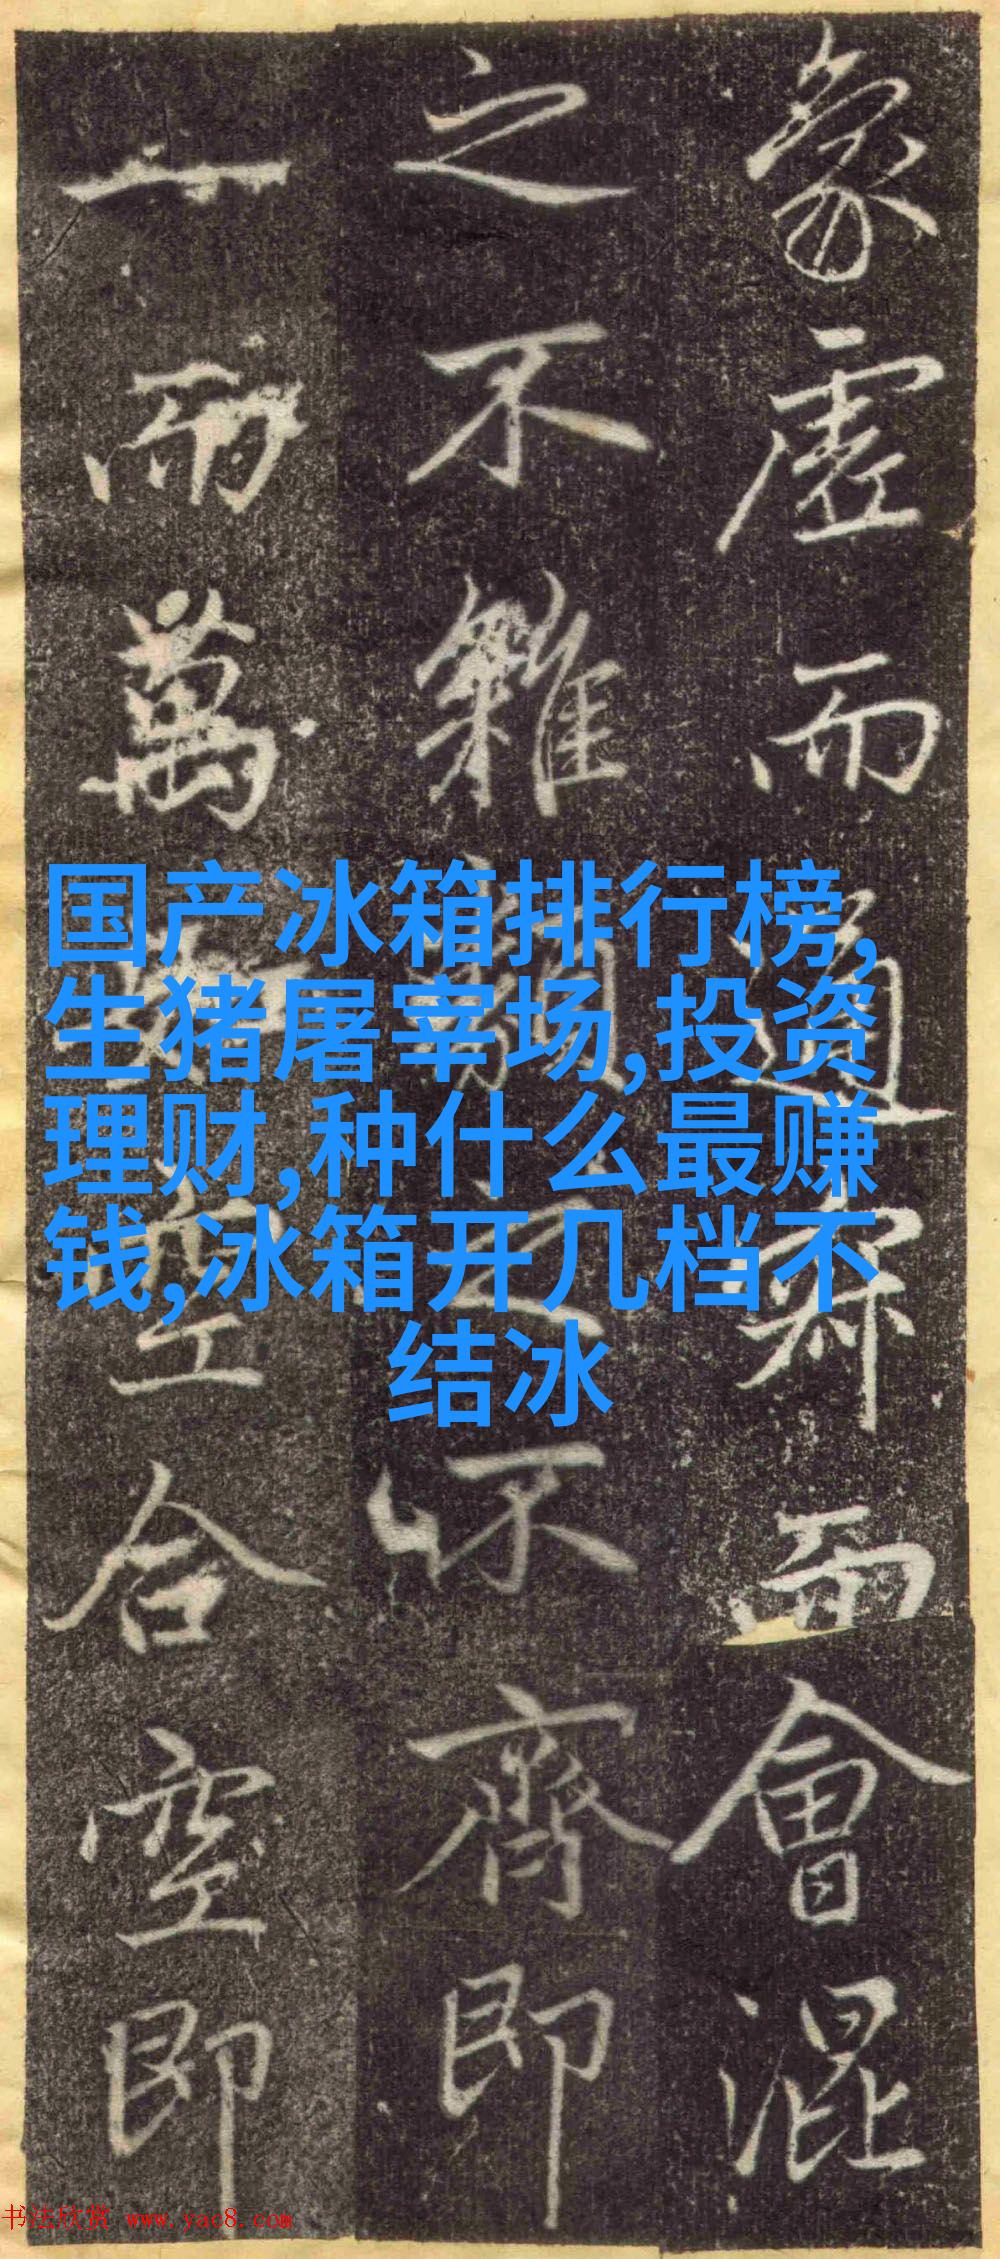 象虛而通寂而會混
之不雜之不齊即
一而萬空合空即
国产冰箱排行榜,
生猪屠宰场,投资
理财,种什么最赚
钱,冰箱开几档不
结冰
书法欣赏 www.yac8.com